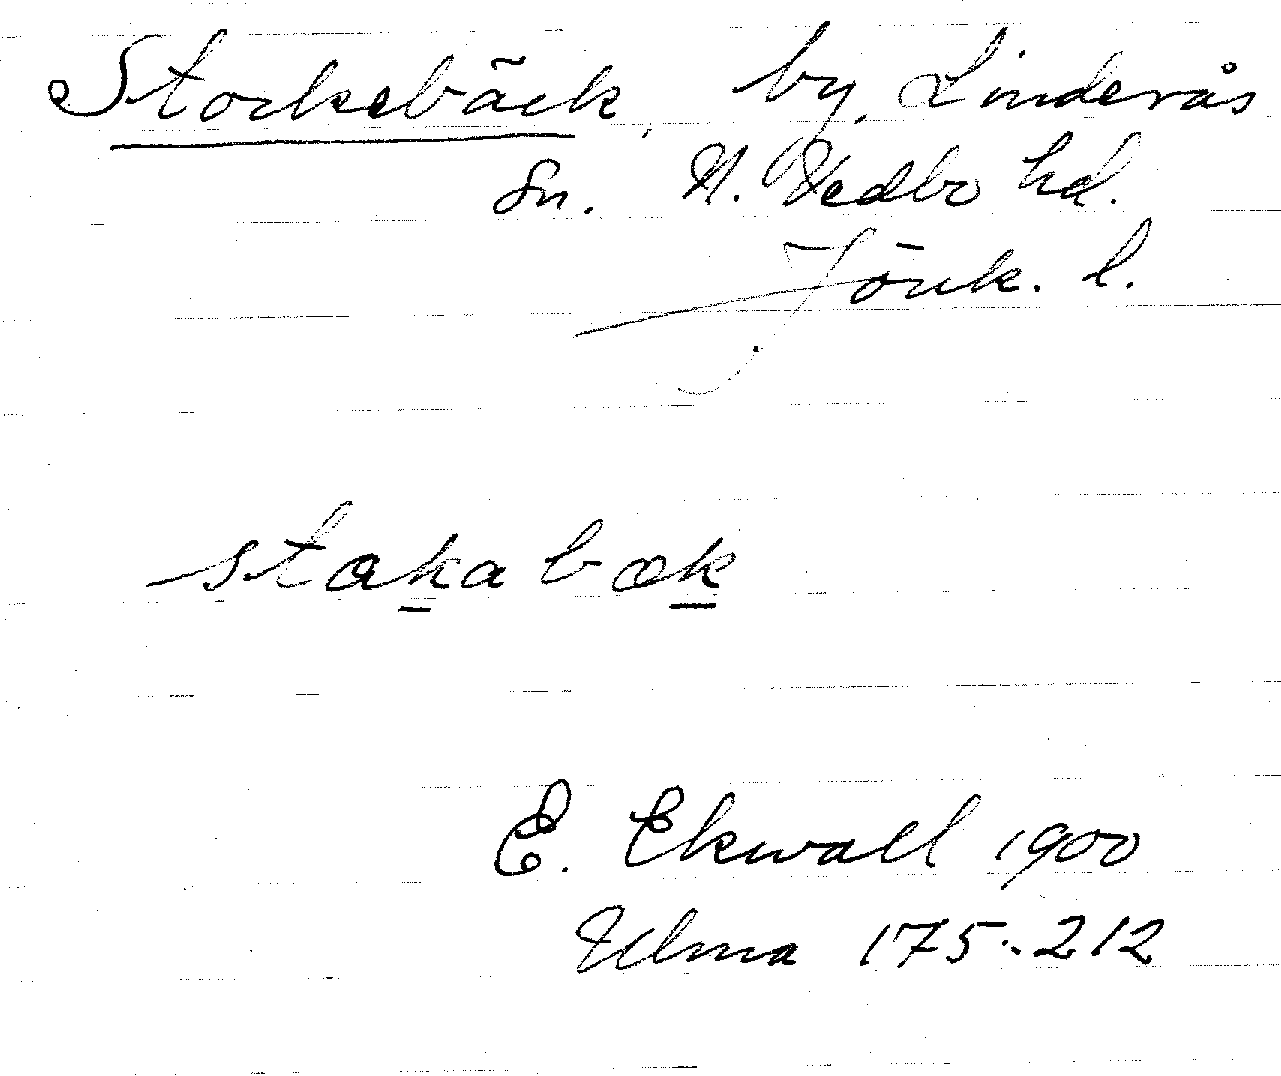 Stockebäck, by, Linderås
Sn. N. Vedbo hd.
Jönk. l.
stakabæk
E. Ekwall 1900
Ulma 175:212